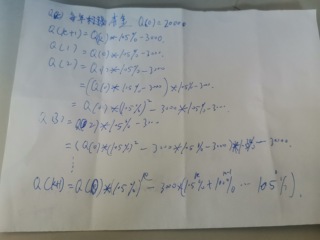 每年 Q(0)=30000
Q(k+1)=Q(k)*105%-3000.
Q(1)=Q(0)*105%-3000.
Q(2)=Q(1)*105%-3000.
=(Q(0)*105%-3000)*105%-3000.
=Q(0)*(105%)²-3000*105%-3000.
Q(3)=Q(2)*105%-3000
=(Q(0)*(105%)²-3000*105%-3000)*105%-3000.
⋮
Q(k+1)=Q(0)*(105%) -3000*(105% + ... 105%).